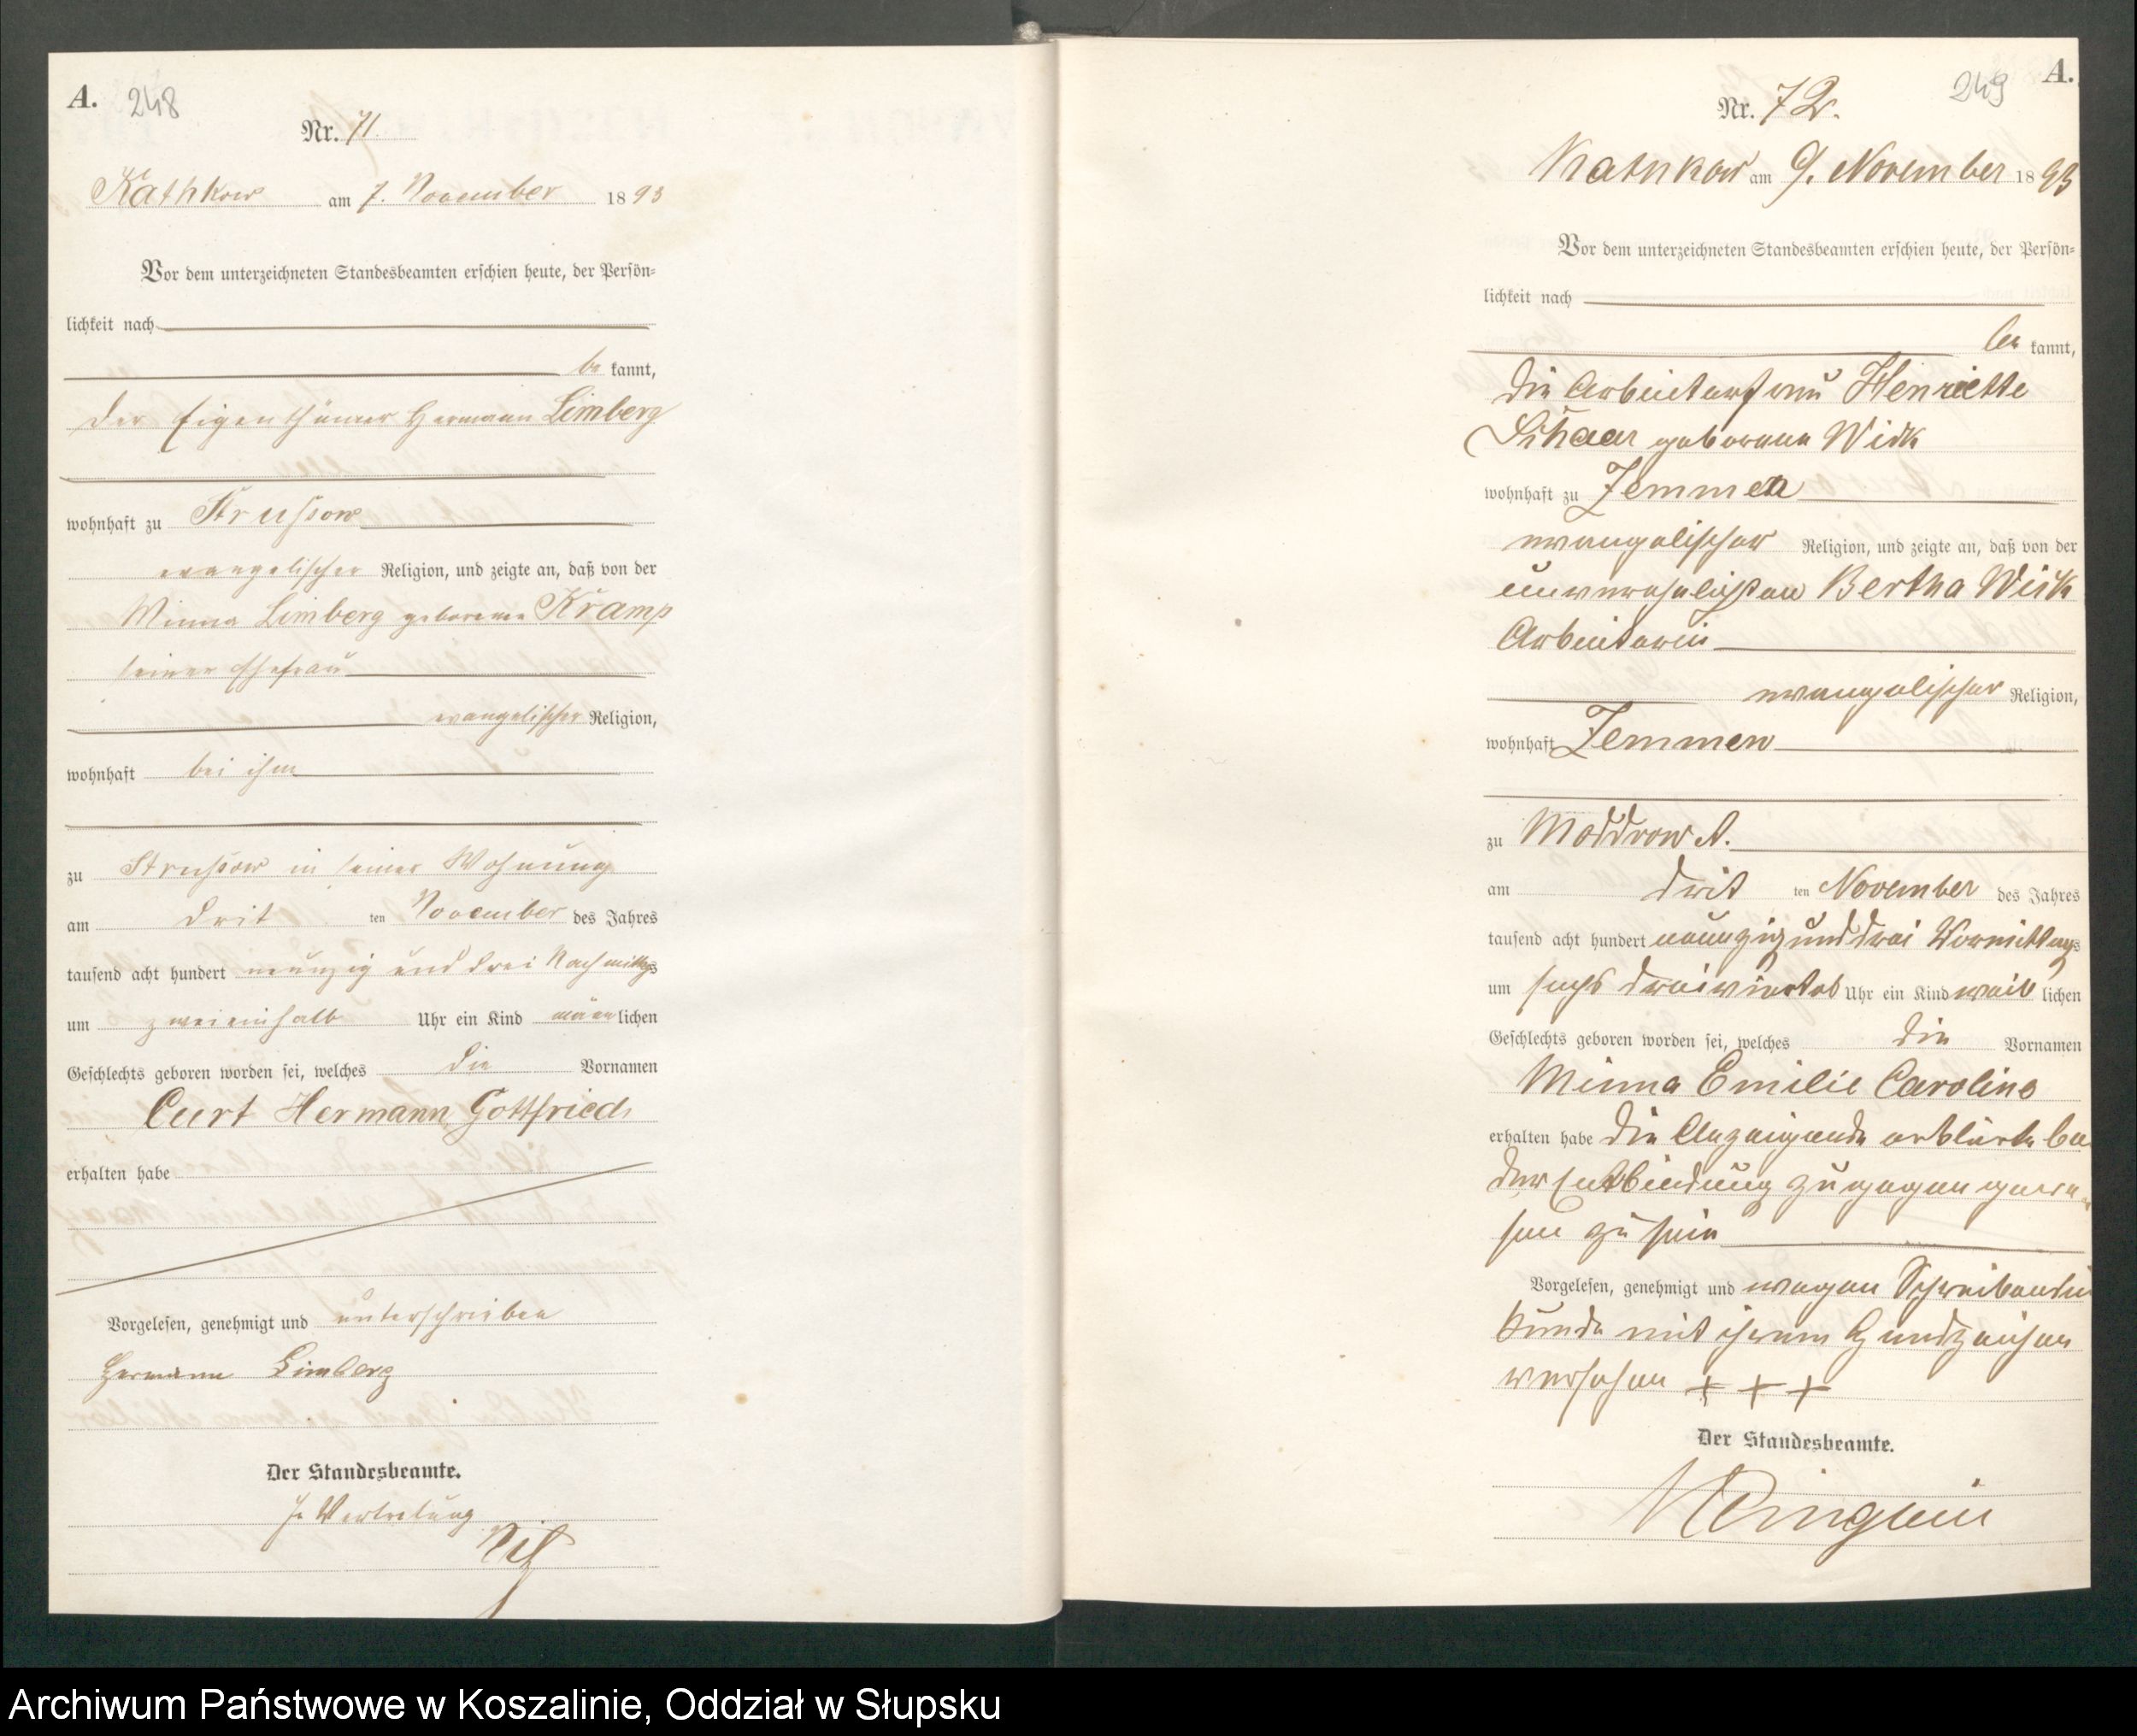 A.
248
Nr. 71.
Kathkow am 7. November 1893
Vor dem unterzeichneten Standesbeamten erschien heute, der Persön=
lichkeit nach
be kannt,
der Eigenthümer Hermann Limberg
wohnhaft zu Strussow
evangelischer Religion, und zeigte an, daß von der
Minna Limberg geborene Kramp
seiner Ehefrau
evangelischer Religion,
wohnhaft bei ihm
zu Strussow in seiner Wohnung
am drit ten November des Jahres
tausend acht hundert neunzig und drei Nachmittags
um zweieinhalb Uhr ein Kind männlichen
Geschlechts geboren worden sei, welches die Vornamen
Curt Hermann Gottfried
erhalten habe
Vorgelesen, genehmigt und unterschrieben
Hermann Limberg
Der Standesbeamte.
In Vertretung
A.
249
Nr. 72.
Kathkow am 9. November 1893
Vor dem unterzeichneten Standesbeamten erschien heute, der Persön=
lichkeit nach
be kannt,
die Arbeiterfrau Henriette
Schaar geborene Wick
wohnhaft zu Zemmen
evangelischer Religion, und zeigte an, daß von der
unverehelichten Bertha Wick
Arbeiterin
evangelischer Religion,
wohnhaft Zemmen
zu Moddrow A.
am drit ten November des Jahres
tausend acht hundert neunzig und drei Vormittags
um sechs dreiviertel Uhr ein Kind weiblichen
Geschlechts geboren worden sei, welches die Vornamen
Minna Emilie Caroline
erhalten habe die Anzeigende erklärte bei
der Entbindung zugegen gewe-
sen zu sein
Vorgelesen, genehmigt und wegen Schreibensun
kunde mit ihrem Handzeichen
versehen + + +
Der Standesbeamte.
Archiwum Państwowe w Koszalinie, Oddział w Słupsku